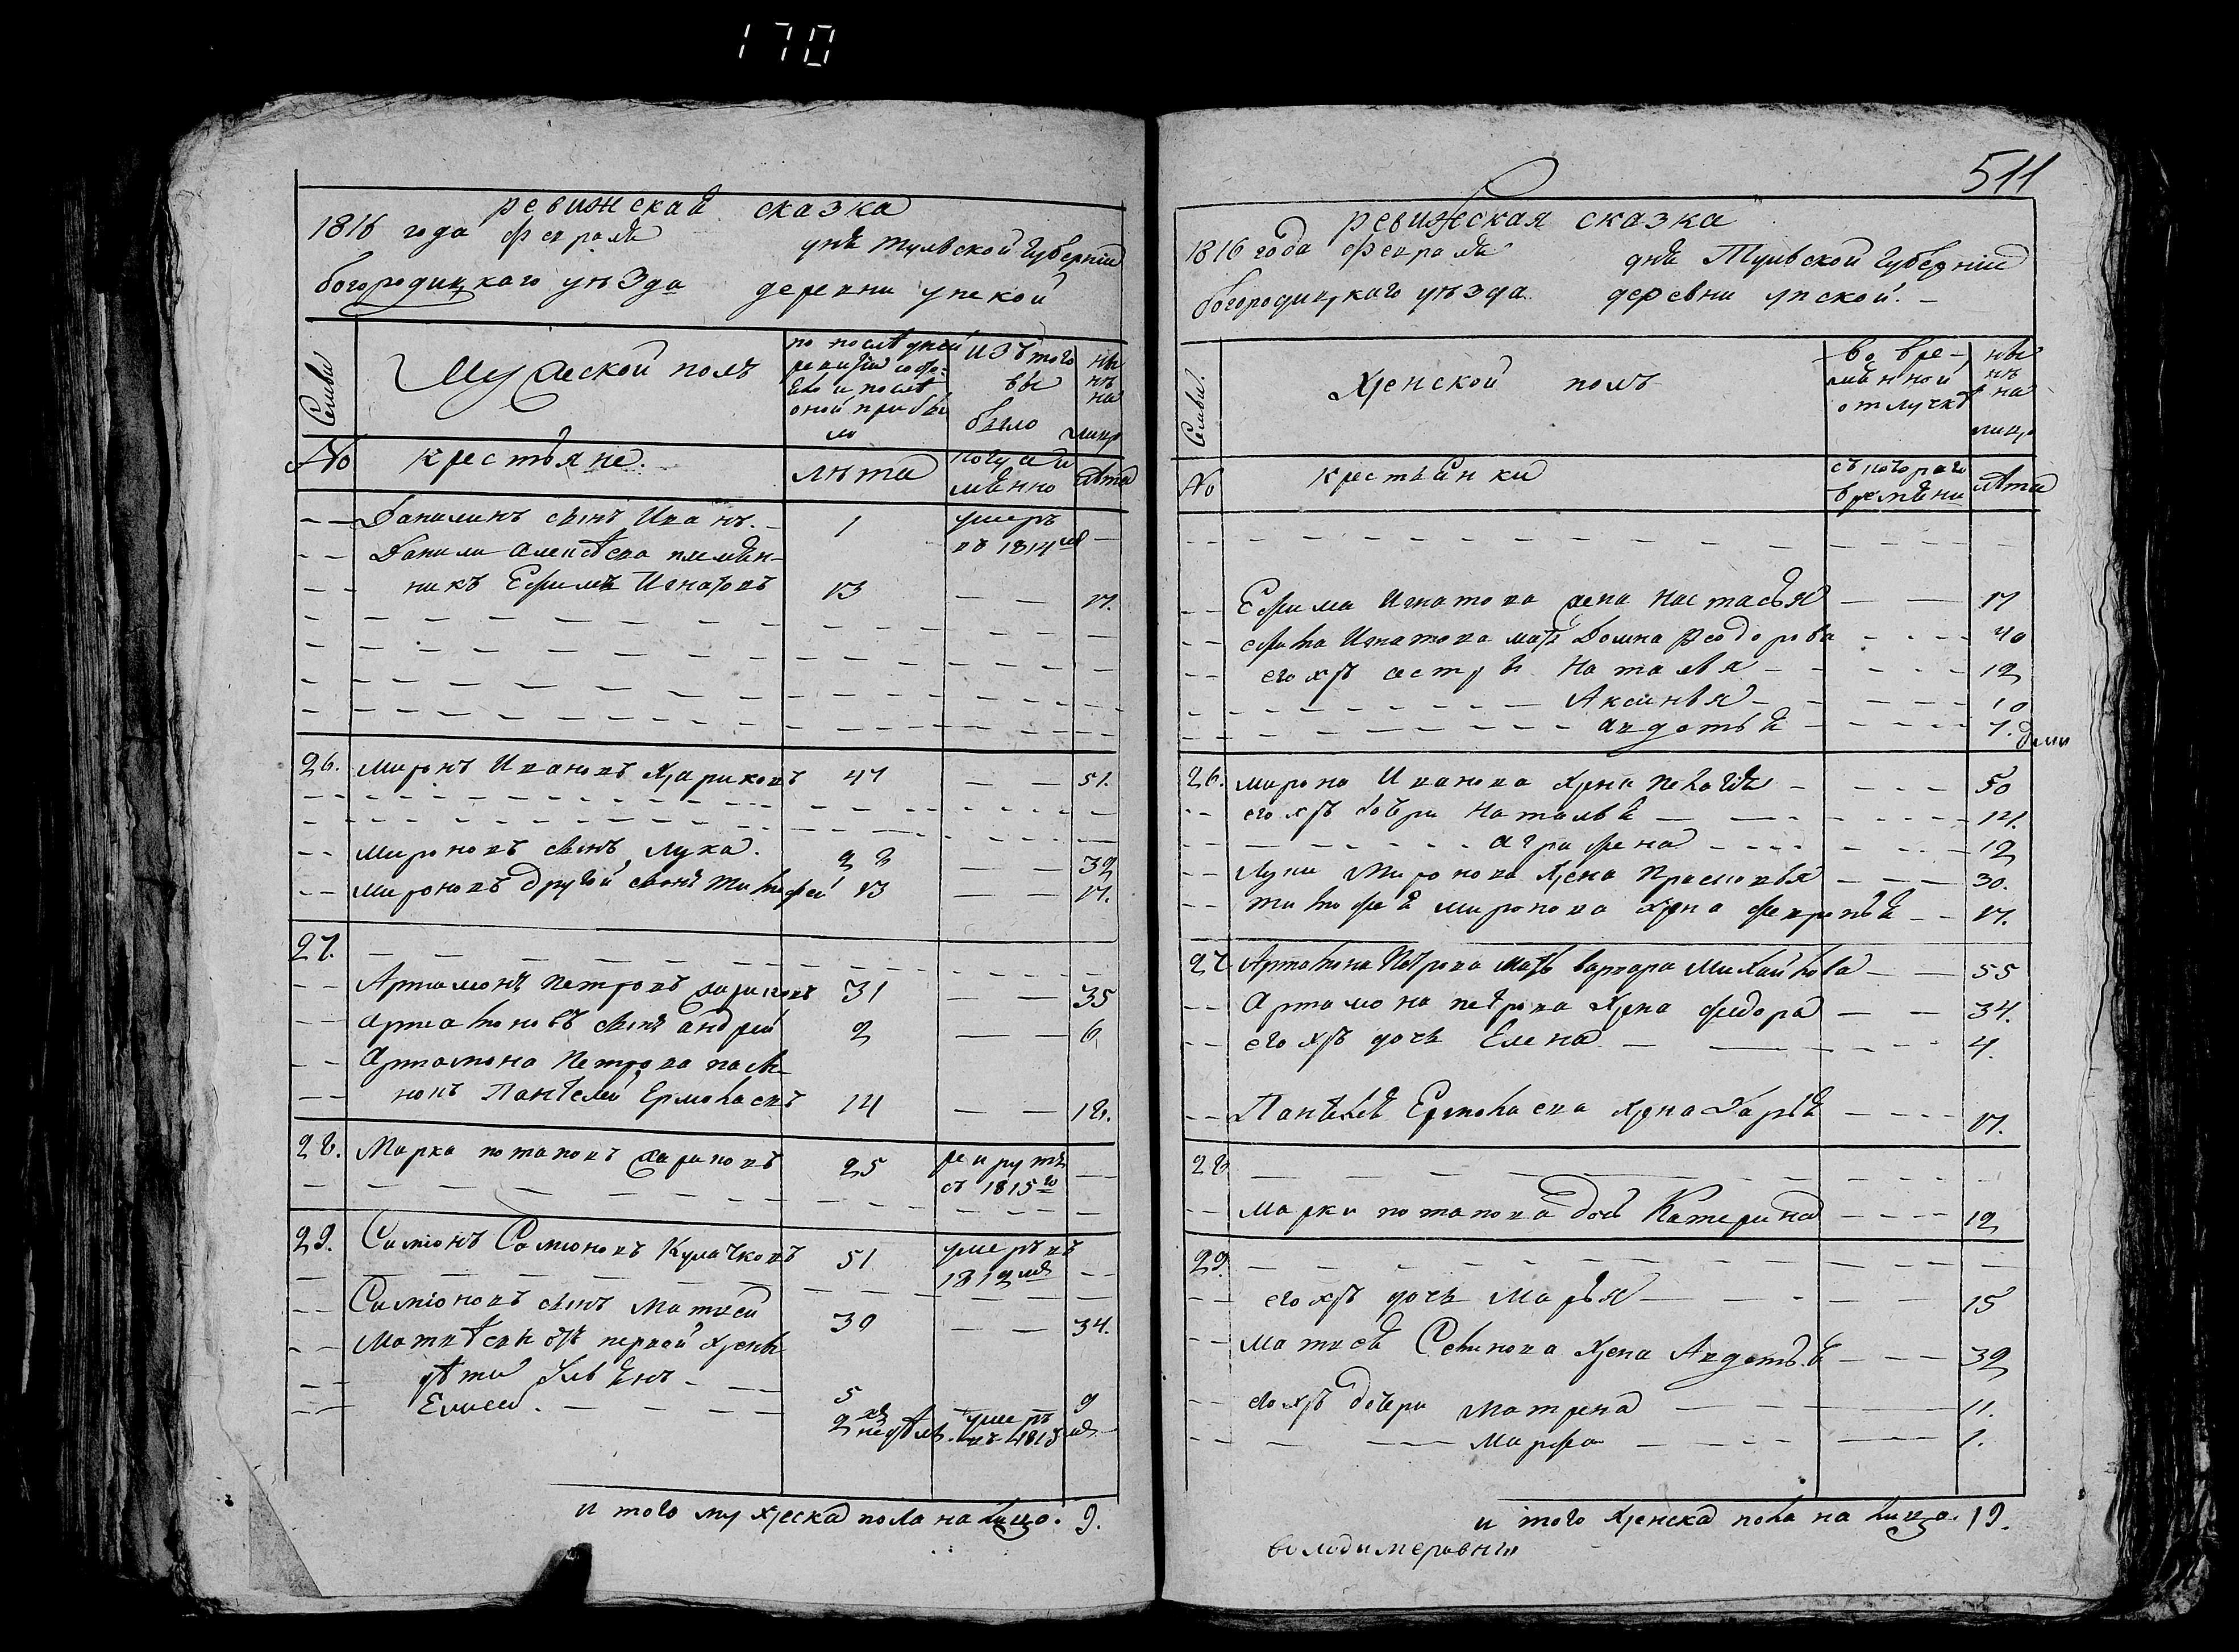 170
ревижскай сказка
1816 года февраля дня тульской Губерніи
богородицкаго уѣзда деревни упской
Семьи
Мужеской полъ
по послѣдней ревизіи состояло и послѣ оной прибыло
изъ того выбыло
нынѣ на лицо
№ крестьяне. лѣта когда имянно лѣта
Данилинъ сынъ Иванъ. 1 умеръ въ 1814мъ
Данилы Алексѣева племян-
никъ Ефимъ Игнатовъ 13 17.
26. Миронъ Ивановъ Жариковъ 47 51.
Мироновъ сынъ Лука. 28 32
Мироновъ другой сынъ Тимофей 13 17.
27.
Артамонъ Петровъ жариковъ 31 35
Артамоновъ сынъ андрей 2 6
Артамона Петрова пасы-
нокъ Пантелей Ермолаевъ 14 18.
28. Марка потаповъ жариковъ 25 рекрутъ съ 1815го
29. Симіонъ Самионовъ Кулачковъ 51 умеръ въ 1812мъ
Симіоновъ сынъ матвей 30 34.
Матвѣевы отъ первой жены
дѣти Ульянъ 5 9
Елисей. 2хъ недѣль. умеръ въ 1813мъ
и того мужеска пола на лицо. 9.
511
ревижская сказка
1816 года февраля дня Тульской Губерніи
богородицкаго уѣзда деревни упской.
Семьи.
Женской полъ
во временной отлучкѣ
нынѣ на лицо
№ крестьянки съ котораго времяни лѣта
Ефима Игнатова жена Настасья 17
ефима Игнатова мать Домна Феодорова 40
его жъ сестры Наталья 12
Аксинья 10
авдотья 7.
26. мирона Иванова жена Пелагѣя 50
его жъ дочери Наталья 14.
аграфена 12
Луки Миронова жена Прасковья 30.
тимофея миронова жена февронья 17.
27 Артамона Петрова мать варвара Михайлова 55
Артамона петрова жена федора 34.
его жъ дочь Елена 4.
Пантелея Ермолаева жена Дарья 17.
28
марки потапова дочь Катерина 12
29.
его жъ дочь Марья 15
матвея Семинова жена Авдотья 32
его жъ дочери матрена 11.
марфа 1.
и того женска пола на лицо. 19.